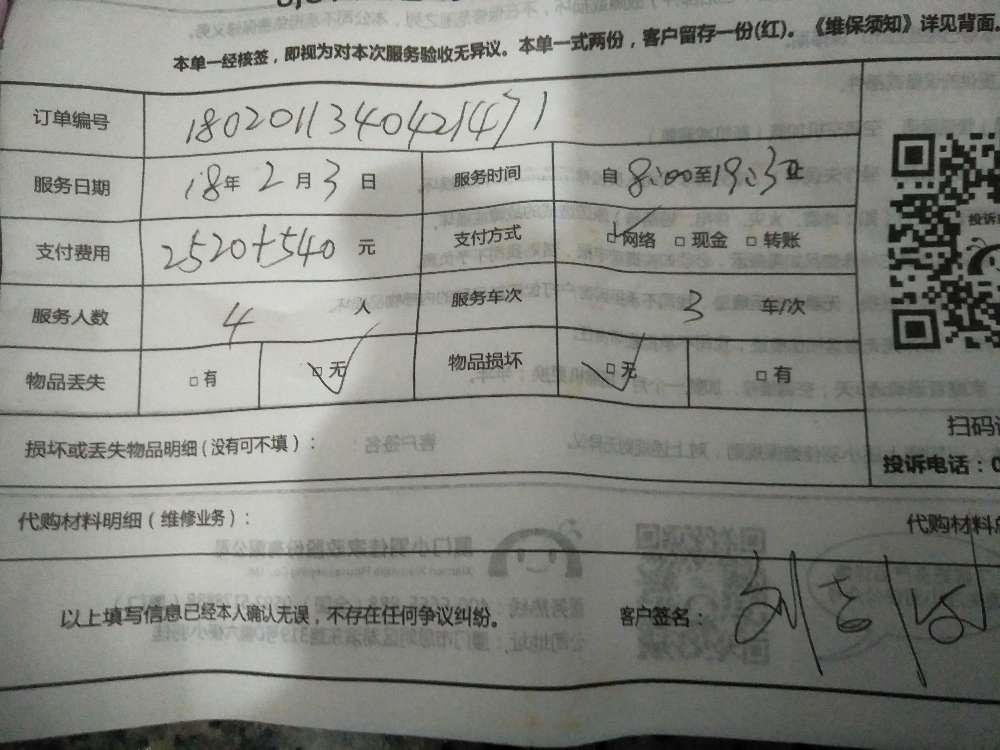 本单一经核签，即视为对本次服务验收无异议。本单一式两份，客户留存一份(红)。《维保须知》详见背面。
订单编号 1802011340421471
服务日期 18年2月3日 服务时间 自8:00至19:3
支付费用 2520+540 元 支付方式 □网络 □现金 □转账
投诉
服务人数 4 人 服务车次 3 车/次
物品丢失 □有 □无 物品损坏 □无 □有
扫码
损坏或丢失物品明细(没有可不填)：
投诉电话：0
代购材料明细(维修业务)： 代购材料
以上填写信息已经本人确认无误，不存在任何争议纠纷。 客户签名：